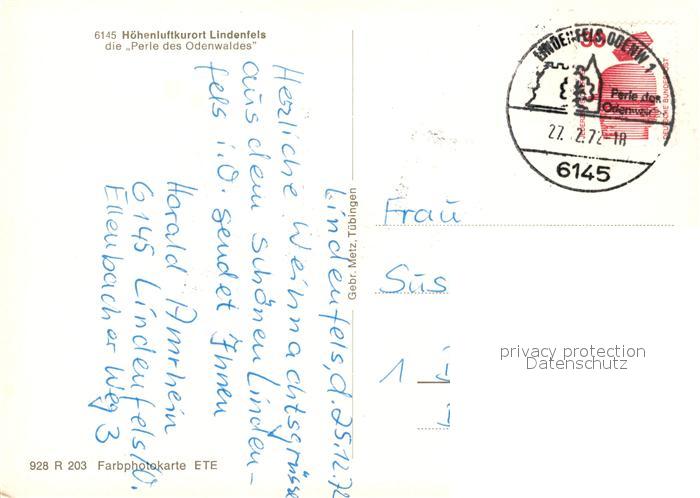 6145 Höhenluftkurort Lindenfels
die „Perle des Odenwaldes"
Lindenfels, d. 25.12.72
Herzliche Weihnachtsgrüsse
aus dem schönen Linden-
fels i.O. sendet Ihnen
Harald Amrhein
6145 Lindenfels/O.
Ellenbacher Weg 3
Gebr. Metz, Tübingen
928 R 203 Farbphotokarte ETE
LINDENFELS, ODENW 1
Perle des
Odenwaldes
27. 2.72-18
6145
DEUTSCHE BUNDESPOST
Frau
Süs
1
privacy protection
Datenschutz